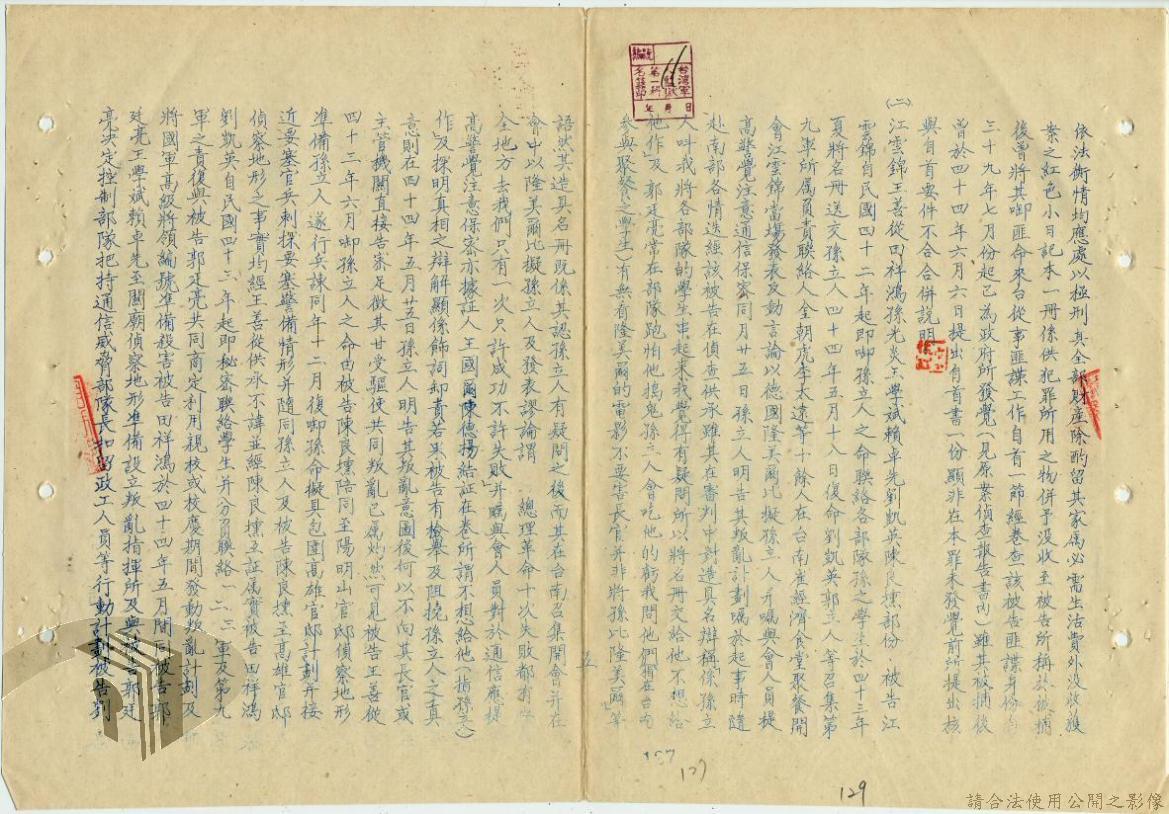 依法衡情均應處以極刑其全部財產除酌留其家属必需生活費外没收獲
案之紅色小日記本一冊係供犯罪所用之物併予没收至被告所稱於被捕
後曾將其啣匪命來台從事匪諜工作自首一節經卷查該被告匪諜身份
三十九年七月份起已為政府所發覺(見原案偵查報告書丙)雖其被捕後
曾於四十四年六月六日提出自首書一份顯非在本罪未發覺前所提出核
與自首要件不合合併説明
(二)
江雲錦王善從田祥鴻孫光炎王學斌賴卓先劉凱英陳良壎部份 被告江
雲錦自民國四十二年起即啣孫立人之命聯絡各部隊孫之學生於四十三年
夏將名冊送交孫立人四十四年五月十八日復命劉凱英郭立人等召集第
九軍所属負責聯絡人全朝虎李太遠等十餘人在台南崔經濟食堂聚餐開
會江雲錦當場發表反動言論以德國隆美爾比擬孫立人并囑與會人員提
高警覺注意通信保密同月廿五日孫立人明告其叛亂計劃囑於起事時隨
赴南部各情迭經該被告在偵查供承雖其在審判中對造具名冊辯稱「係孫立
人叫我將各部隊的學生串起來我覺得有疑問所以將名冊交給他不想給
他作及郭廷亮常在部隊跑怕他搗鬼孫立人會吃他的虧我問他們(指在台南
參與聚餐之學生)有無看隆美爾的電影不要害長官并非將孫比隆美爾」等
語然其造具名冊既係其認孫立人有疑問之後而其在台南召集開會并在
會中以隆美爾比擬孫立人及發表謬論謂 總理革命十次失敗都有
全地方去我們只有一次只許成功不許失敗」并囑與會人員對於通信應提
高警覺注意保密亦據証人王國爾陳德揚結証在卷所謂不想給他(指孫立人)
作及探明真相之辯解顯係飾詞卸責若果被告有檢舉及阻撓孫立人之真
意則在四十四年五月廿五日孫立人明告其叛亂意圖後何以不向其長官或
主管機關直接告密足徵其甘受驅使共同叛亂已属灼然可見被告王善從
四十三年六月啣孫立人之命由被告陳良壎陪同至陽明山官邸偵察地形
準備孫立人 遂行兵諫同年十二月復啣孫命擬具包圍高雄官邸計劃并接
近要塞官兵刺探要塞警備情形并隨同孫立人及被告陳良壎至高雄官邸
偵察地形之事實均經王善從供承不諱並經陳良壎立証属實被告田祥鴻
劉凱英自民國四十三年起即秘密聯絡學生并分負聯絡一二三軍及第九
軍之責復與被告郭廷亮共同商定利用親校或校慶期間發動叛亂計劃及
將國軍高級將領編號準備殺害被告田祥鴻於四十四年五月間同被告郭
廷亮王學斌賴卓先至關廟偵察地形準備設立叛亂指揮所及與被告郭廷
亮決定控制部隊把持通信威脅部隊長扣留政工人員等行動計劃被告劉
五
127
129
台灣軍
年 月 日
請合法使用公開之影像